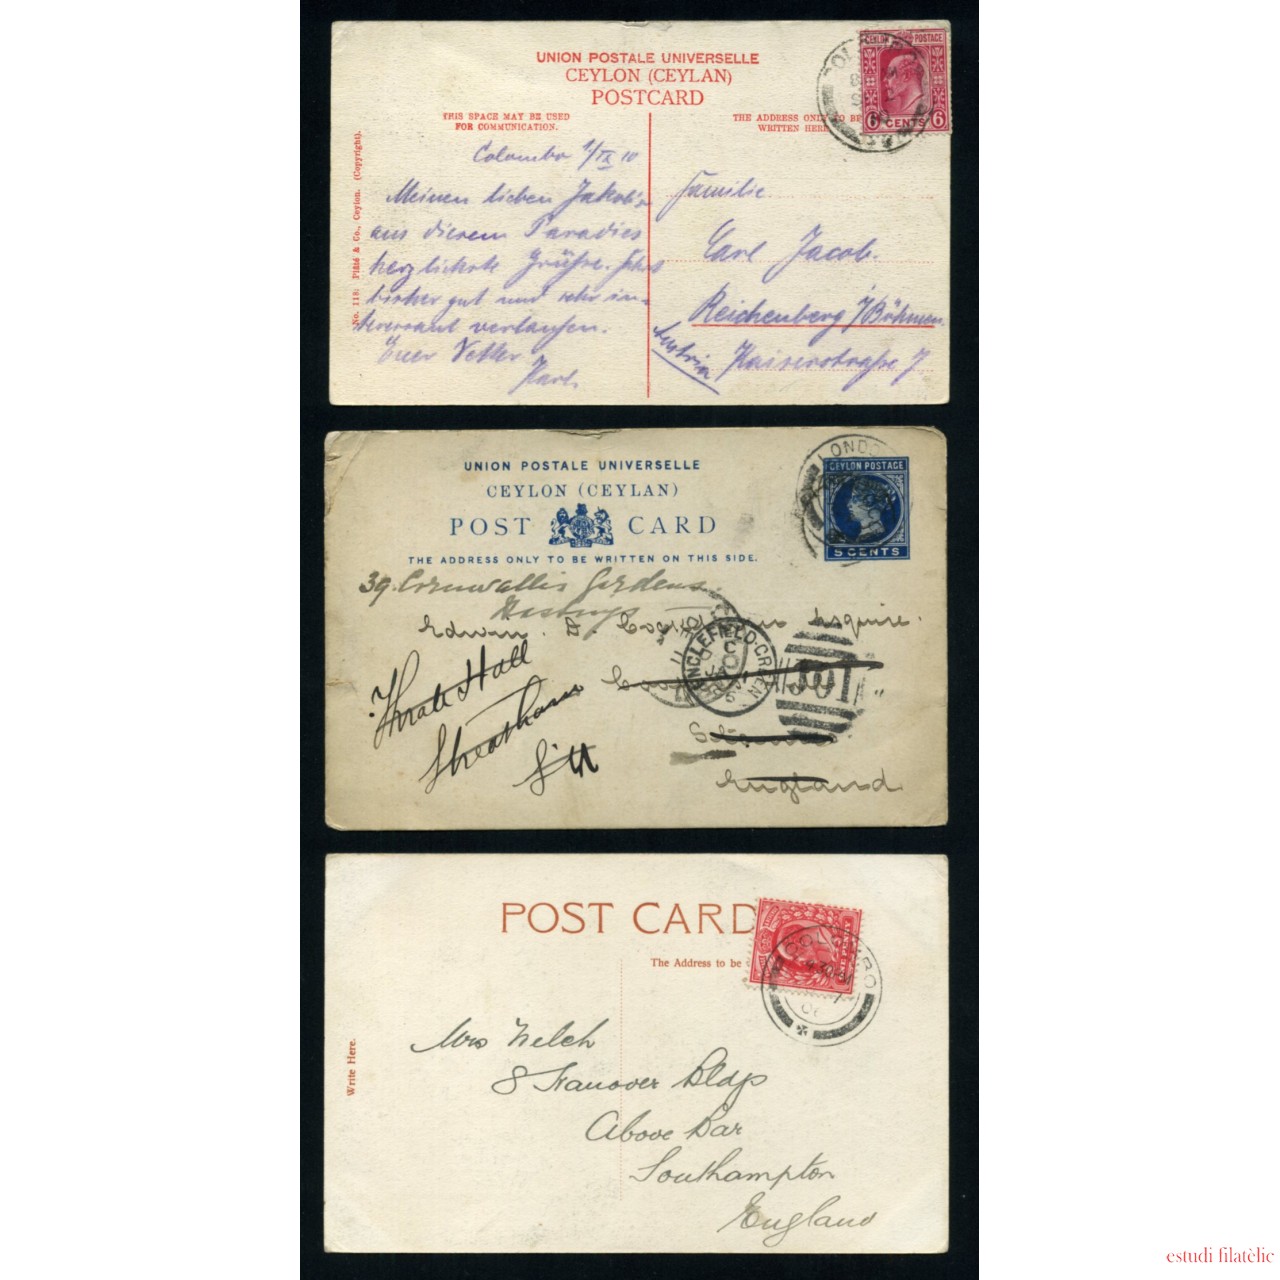 UNION POSTALE UNIVERSELLE
CEYLON (CEYLAN)
POSTCARD
THIS SPACE MAY BE USED
FOR COMMUNICATION.
THE ADDRESS ONLY TO BE
WRITTEN HERE
CEYLON POSTAGE
6 CENTS 6
No. 118: Plâté & Co., Ceylon. (Copyright).
Colombo 1/IX 10
Meinen lieben Jakob's
aus diesem Paradies
herzlichste Grüße.
bisher gut und sehr in-
teressant verlaufen.
Euer Vetter
Karl.
Familie
Carl Jacob.
Reichenberg i/Böhmen.
Kaiserstraße 7
Austria
UNION POSTALE UNIVERSELLE
CEYLON (CEYLAN)
POST CARD
THE ADDRESS ONLY TO BE WRITTEN ON THIS SIDE.
LONDON
CEYLON POSTAGE
5 CENTS
39. Cornwallis Gardens.
Hastings
Edwin. D. Esquire.
ENGLEFIELD-GREEN
C
England
Thrale Hall
Streatham
S.W
POST CARD
The Address to be
COLOMBO
Write Here.
Mrs Welch
8 Hanover Bldgs
Above Bar
Southampton
England
estudi filatèlic